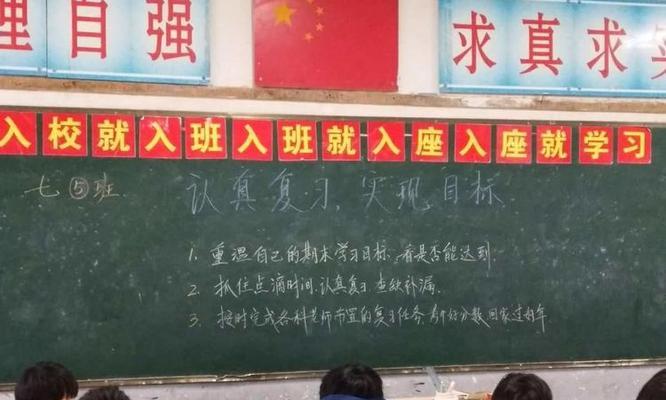 理自强
求真求实
入校就入班入班就入座入座就学习
七⑤班 认真复习,实现目标
1. 重温自己的期末学习目标,看是否能达到.
2. 抓住点滴时间,认真复习 查缺补漏.
3. 按时完成各科老师布置的复习任务,考个好分数回家过好年